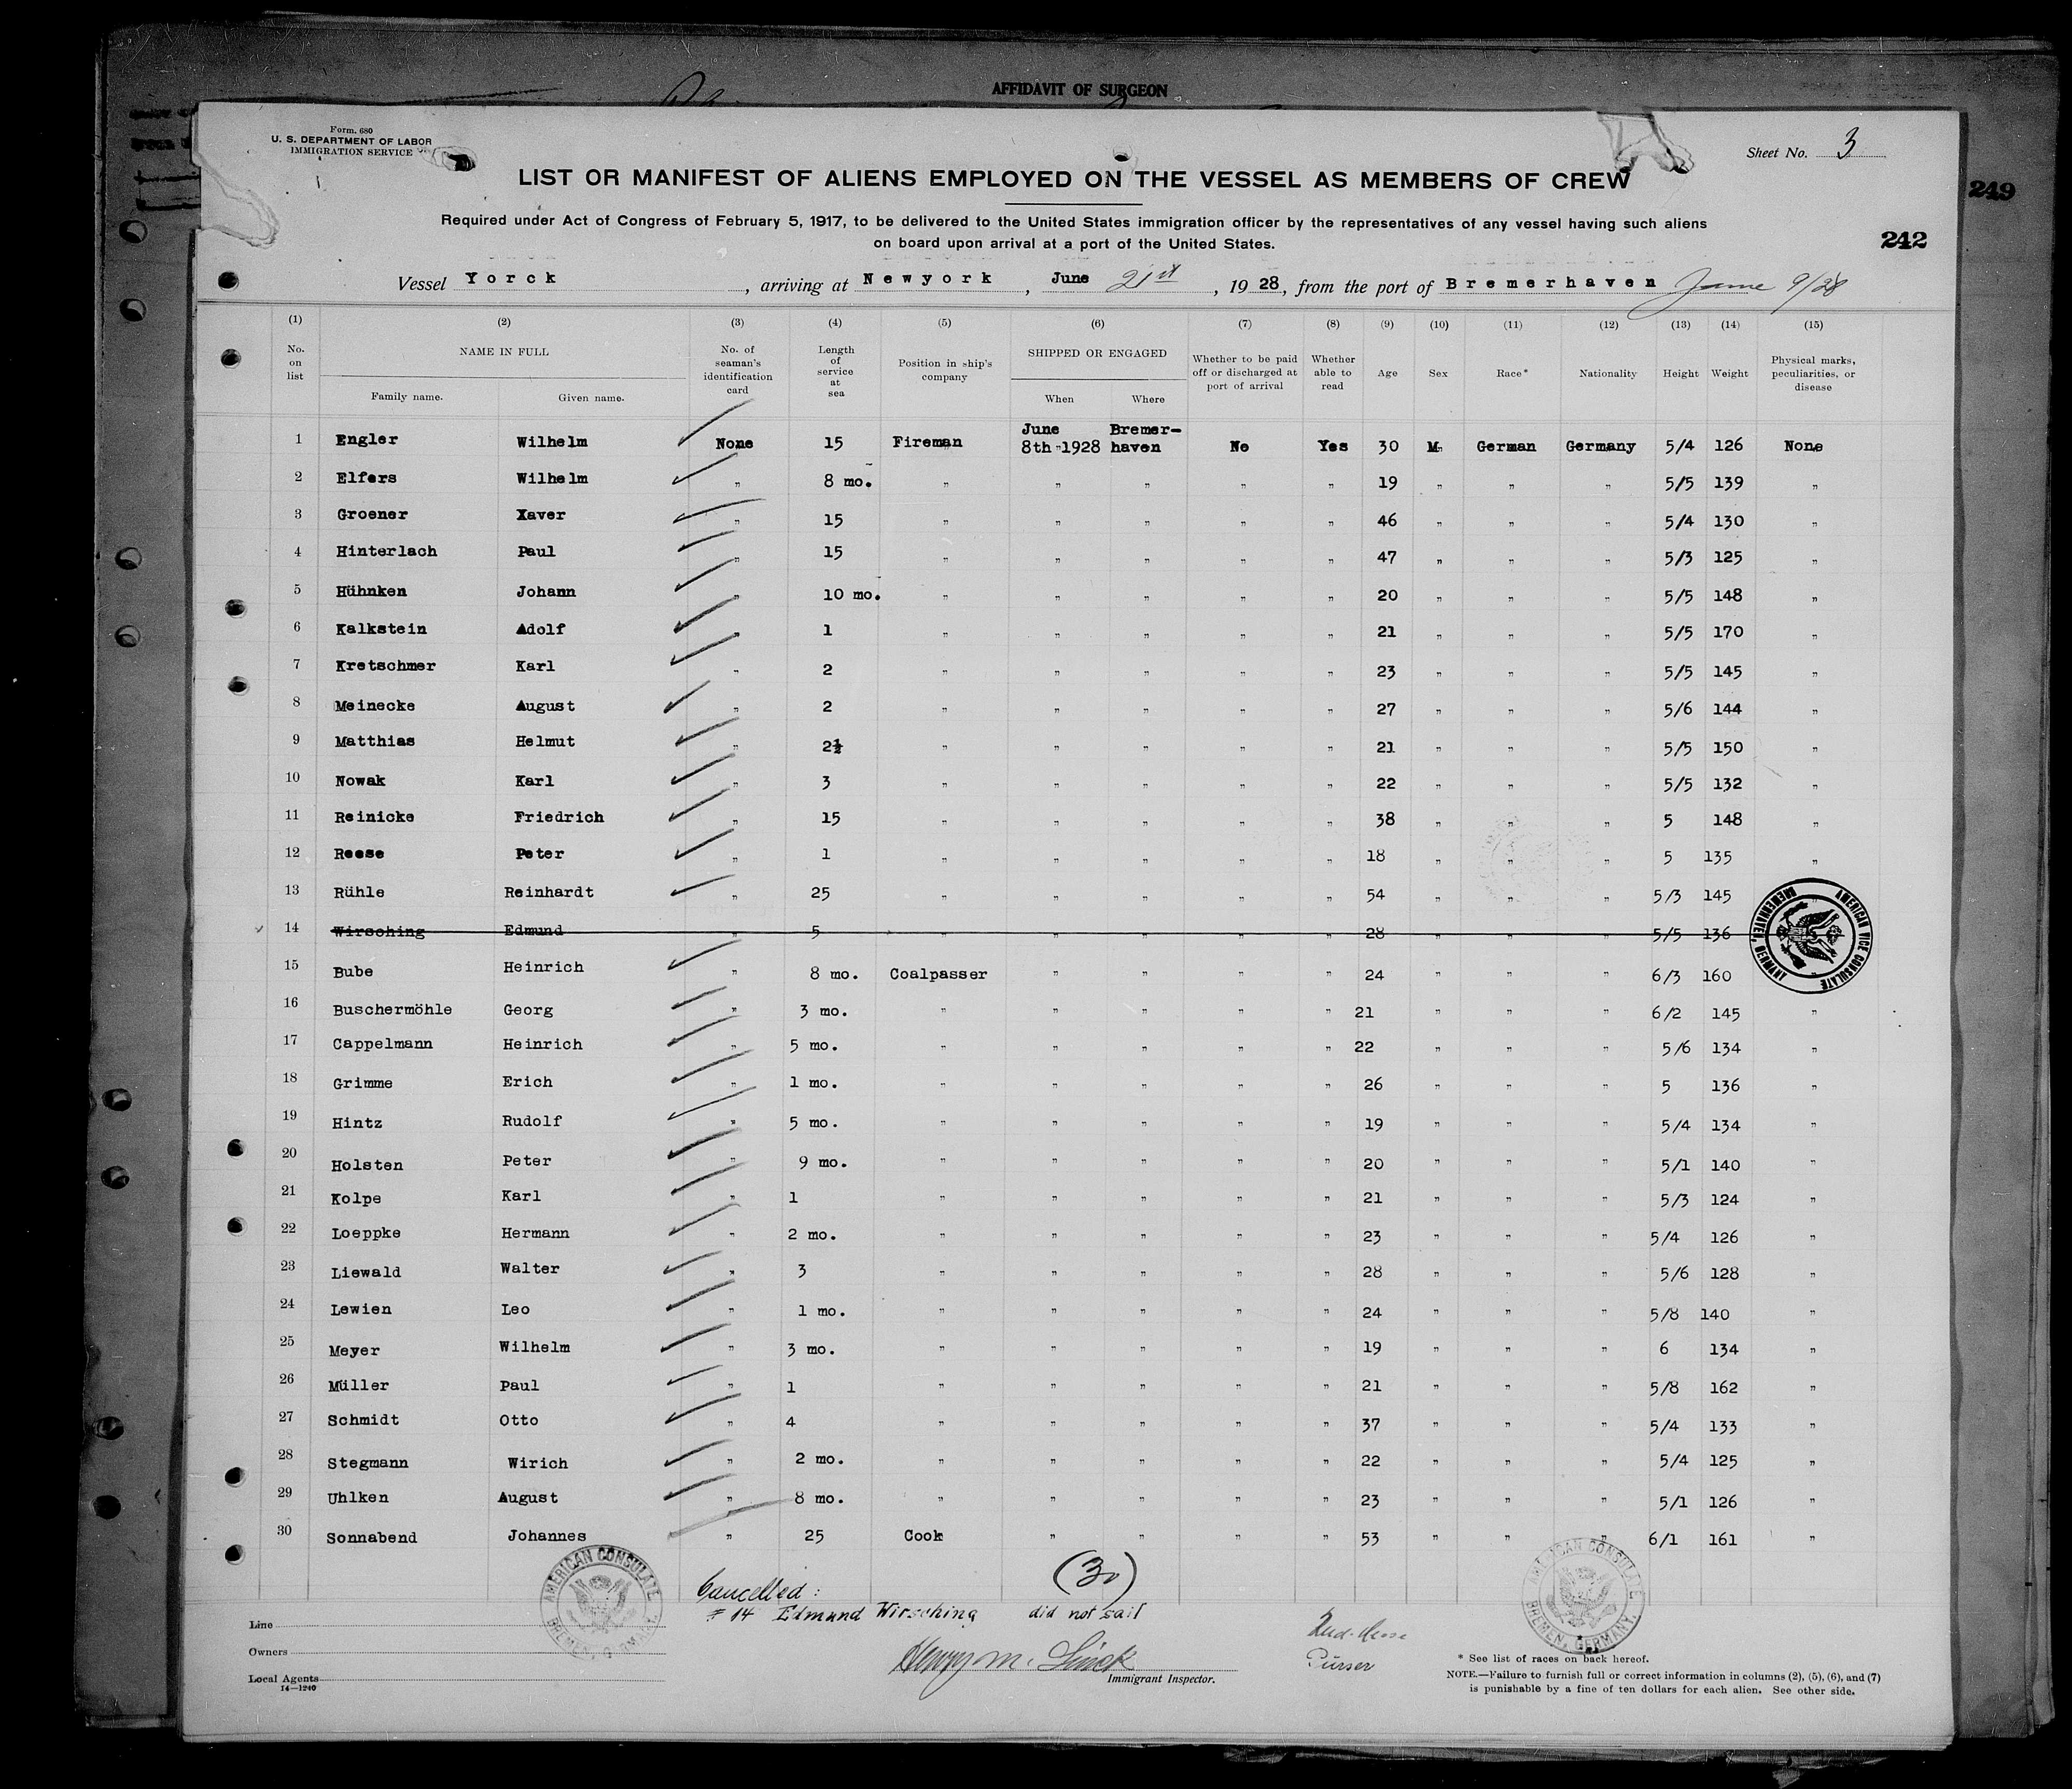 AFFIDAVIT OF SURGEON
Form. 680
U. S. DEPARTMENT OF LABOR
IMMIGRATION SERVICE
Sheet No. 3
249
LIST OR MANIFEST OF ALIENS EMPLOYED ON THE VESSEL AS MEMBERS OF CREW
Required under Act of Congress of February 5, 1917, to be delivered to the United States immigration officer by the representatives of any vessel having such aliens
on board upon arrival at a port of the United States.
242
Vessel Yorck, arriving at Newyork, June 21st, 1928, from the port of Bremerhaven June 9/28
(1) (2) (3) (4) (5) (6) (7) (8) (9) (10) (11) (12) (13) (14) (15)
No. on list
NAME IN FULL
Family name. Given name.
No. of seaman's identification card
Length of service at sea
Position in ship's company
SHIPPED OR ENGAGED
When Where
Whether to be paid off or discharged at port of arrival
Whether able to read
Age
Sex
Race*
Nationality
Height
Weight
Physical marks, peculiarities, or disease
1 Engler Wilhelm None 15 Fireman June 8th 1928 Bremerhaven No Yes 30 M. German Germany 5/4 126 None
2 Elfers Wilhelm " 8 mo. " " " " " 19 " " " 5/5 139 "
3 Groener Xaver " 15 " " " " " 46 " " " 5/4 130 "
4 Hinterlach Paul " 15 " " " " " 47 " " " 5/3 125 "
5 Hühnken Johann " 10 mo. " " " " " 20 " " " 5/5 148 "
6 Kalkstein Adolf " 1 " " " " " 21 " " " 5/5 170 "
7 Kretschmer Karl " 2 " " " " " 23 " " " 5/5 145 "
8 Meinecke August " 2 " " " " " 27 " " " 5/6 144 "
9 Matthias Helmut " 2½ " " " " " 21 " " " 5/5 150 "
10 Nowak Karl " 3 " " " " " 22 " " " 5/5 132 "
11 Reinicke Friedrich " 15 " " " " " 38 " " " 5 148 "
12 Reese Peter " 1 " " " " " 18 " " " 5 135 "
13 Rühle Reinhardt " 25 " " " " " 54 " " " 5/3 145
14 Wirsching Edmund " 5 " " " " " 28 " " " 5/5 136
AMERICAN VICE CONSULATE BREMERHAVEN, GERMANY
15 Bube Heinrich " 8 mo. Coalpasser " " " " 24 " " " 6/3 160
16 Buschermöhle Georg " 3 mo. " " " " " 21 " " " 6/2 145 "
17 Cappelmann Heinrich " 5 mo. " " " " " 22 " " " 5/6 134 "
18 Grimme Erich " 1 mo. " " " " " 26 " " " 5 136 "
19 Hintz Rudolf " 5 mo. " " " " " 19 " " " 5/4 134 "
20 Holsten Peter " 9 mo. " " " " " 20 " " " 5/1 140 "
21 Kolpe Karl " 1 " " " " " 21 " " " 5/3 124 "
22 Loeppke Hermann " 2 mo. " " " " " 23 " " " 5/4 126 "
23 Liewald Walter " 3 " " " " " 28 " " " 5/6 128 "
24 Lewien Leo " 1 mo. " " " " " 24 " " " 5/8 140 "
25 Meyer Wilhelm " 3 mo. " " " " " 19 " " " 6 134 "
26 Müller Paul " 1 " " " " " 21 " " " 5/8 162 "
27 Schmidt Otto " 4 " " " " " 37 " " " 5/4 133 "
28 Stegmann Wirich " 2 mo. " " " " " 22 " " " 5/4 125 "
29 Uhlken August " 8 mo. " " " " " 23 " " " 5/1 126 "
30 Sonnabend Johannes " 25 Cook " " " " 53 " " " 6/1 161 "
AMERICAN CONSULATE BREMEN, GERMANY
Cancelled:
(30)
# 14 Edmund Wirsching did not sail
AMERICAN CONSULATE BREMEN, GERMANY.
Line
Owners
Local Agents
14—1240
Henry M.
Immigrant Inspector.
Purser
* See list of races on back hereof.
NOTE.—Failure to furnish full or correct information in columns (2), (5), (6), and (7)
is punishable by a fine of ten dollars for each alien. See other side.